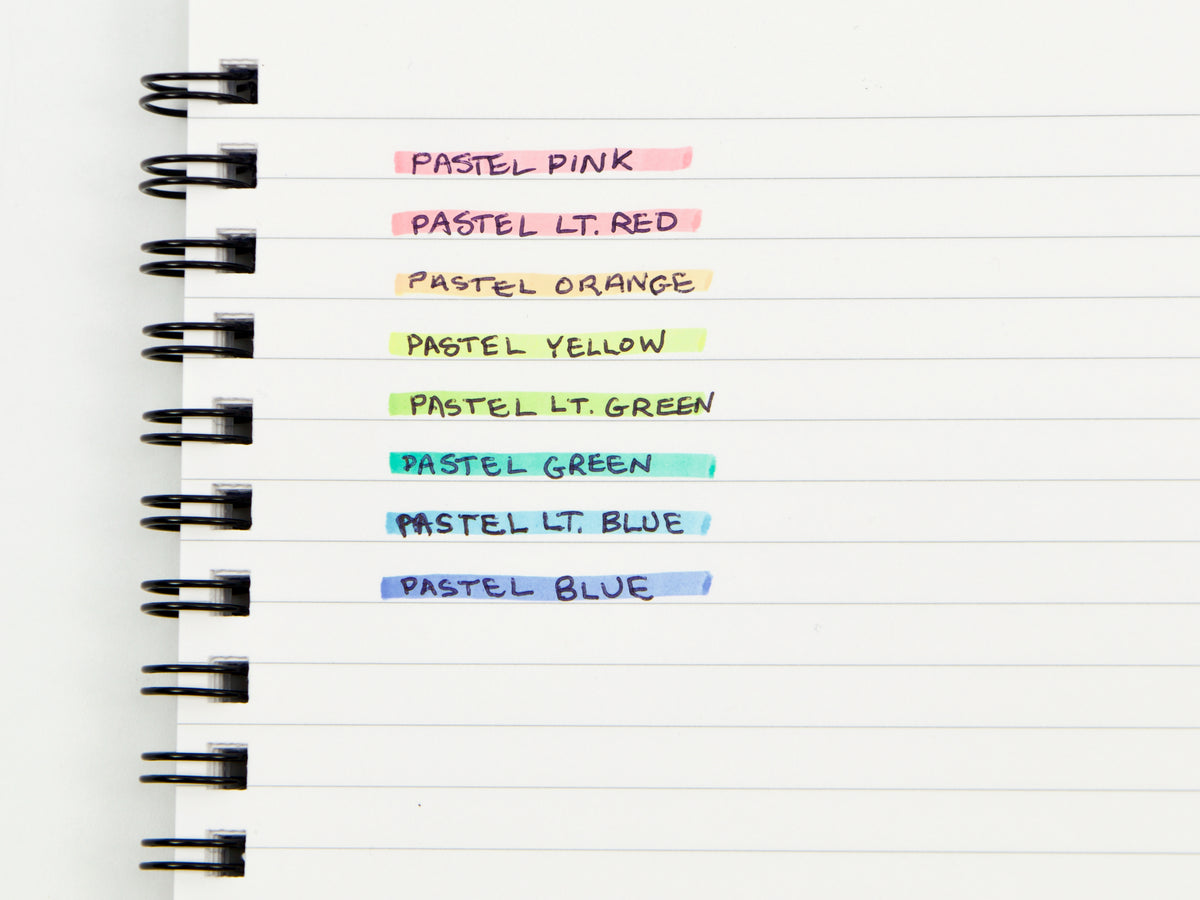 PASTEL PINK
PASTEL LT. RED
PASTEL ORANGE
PASTEL YELLOW
PASTEL LT. GREEN
PASTEL GREEN
PASTEL LT. BLUE
PASTEL BLUE